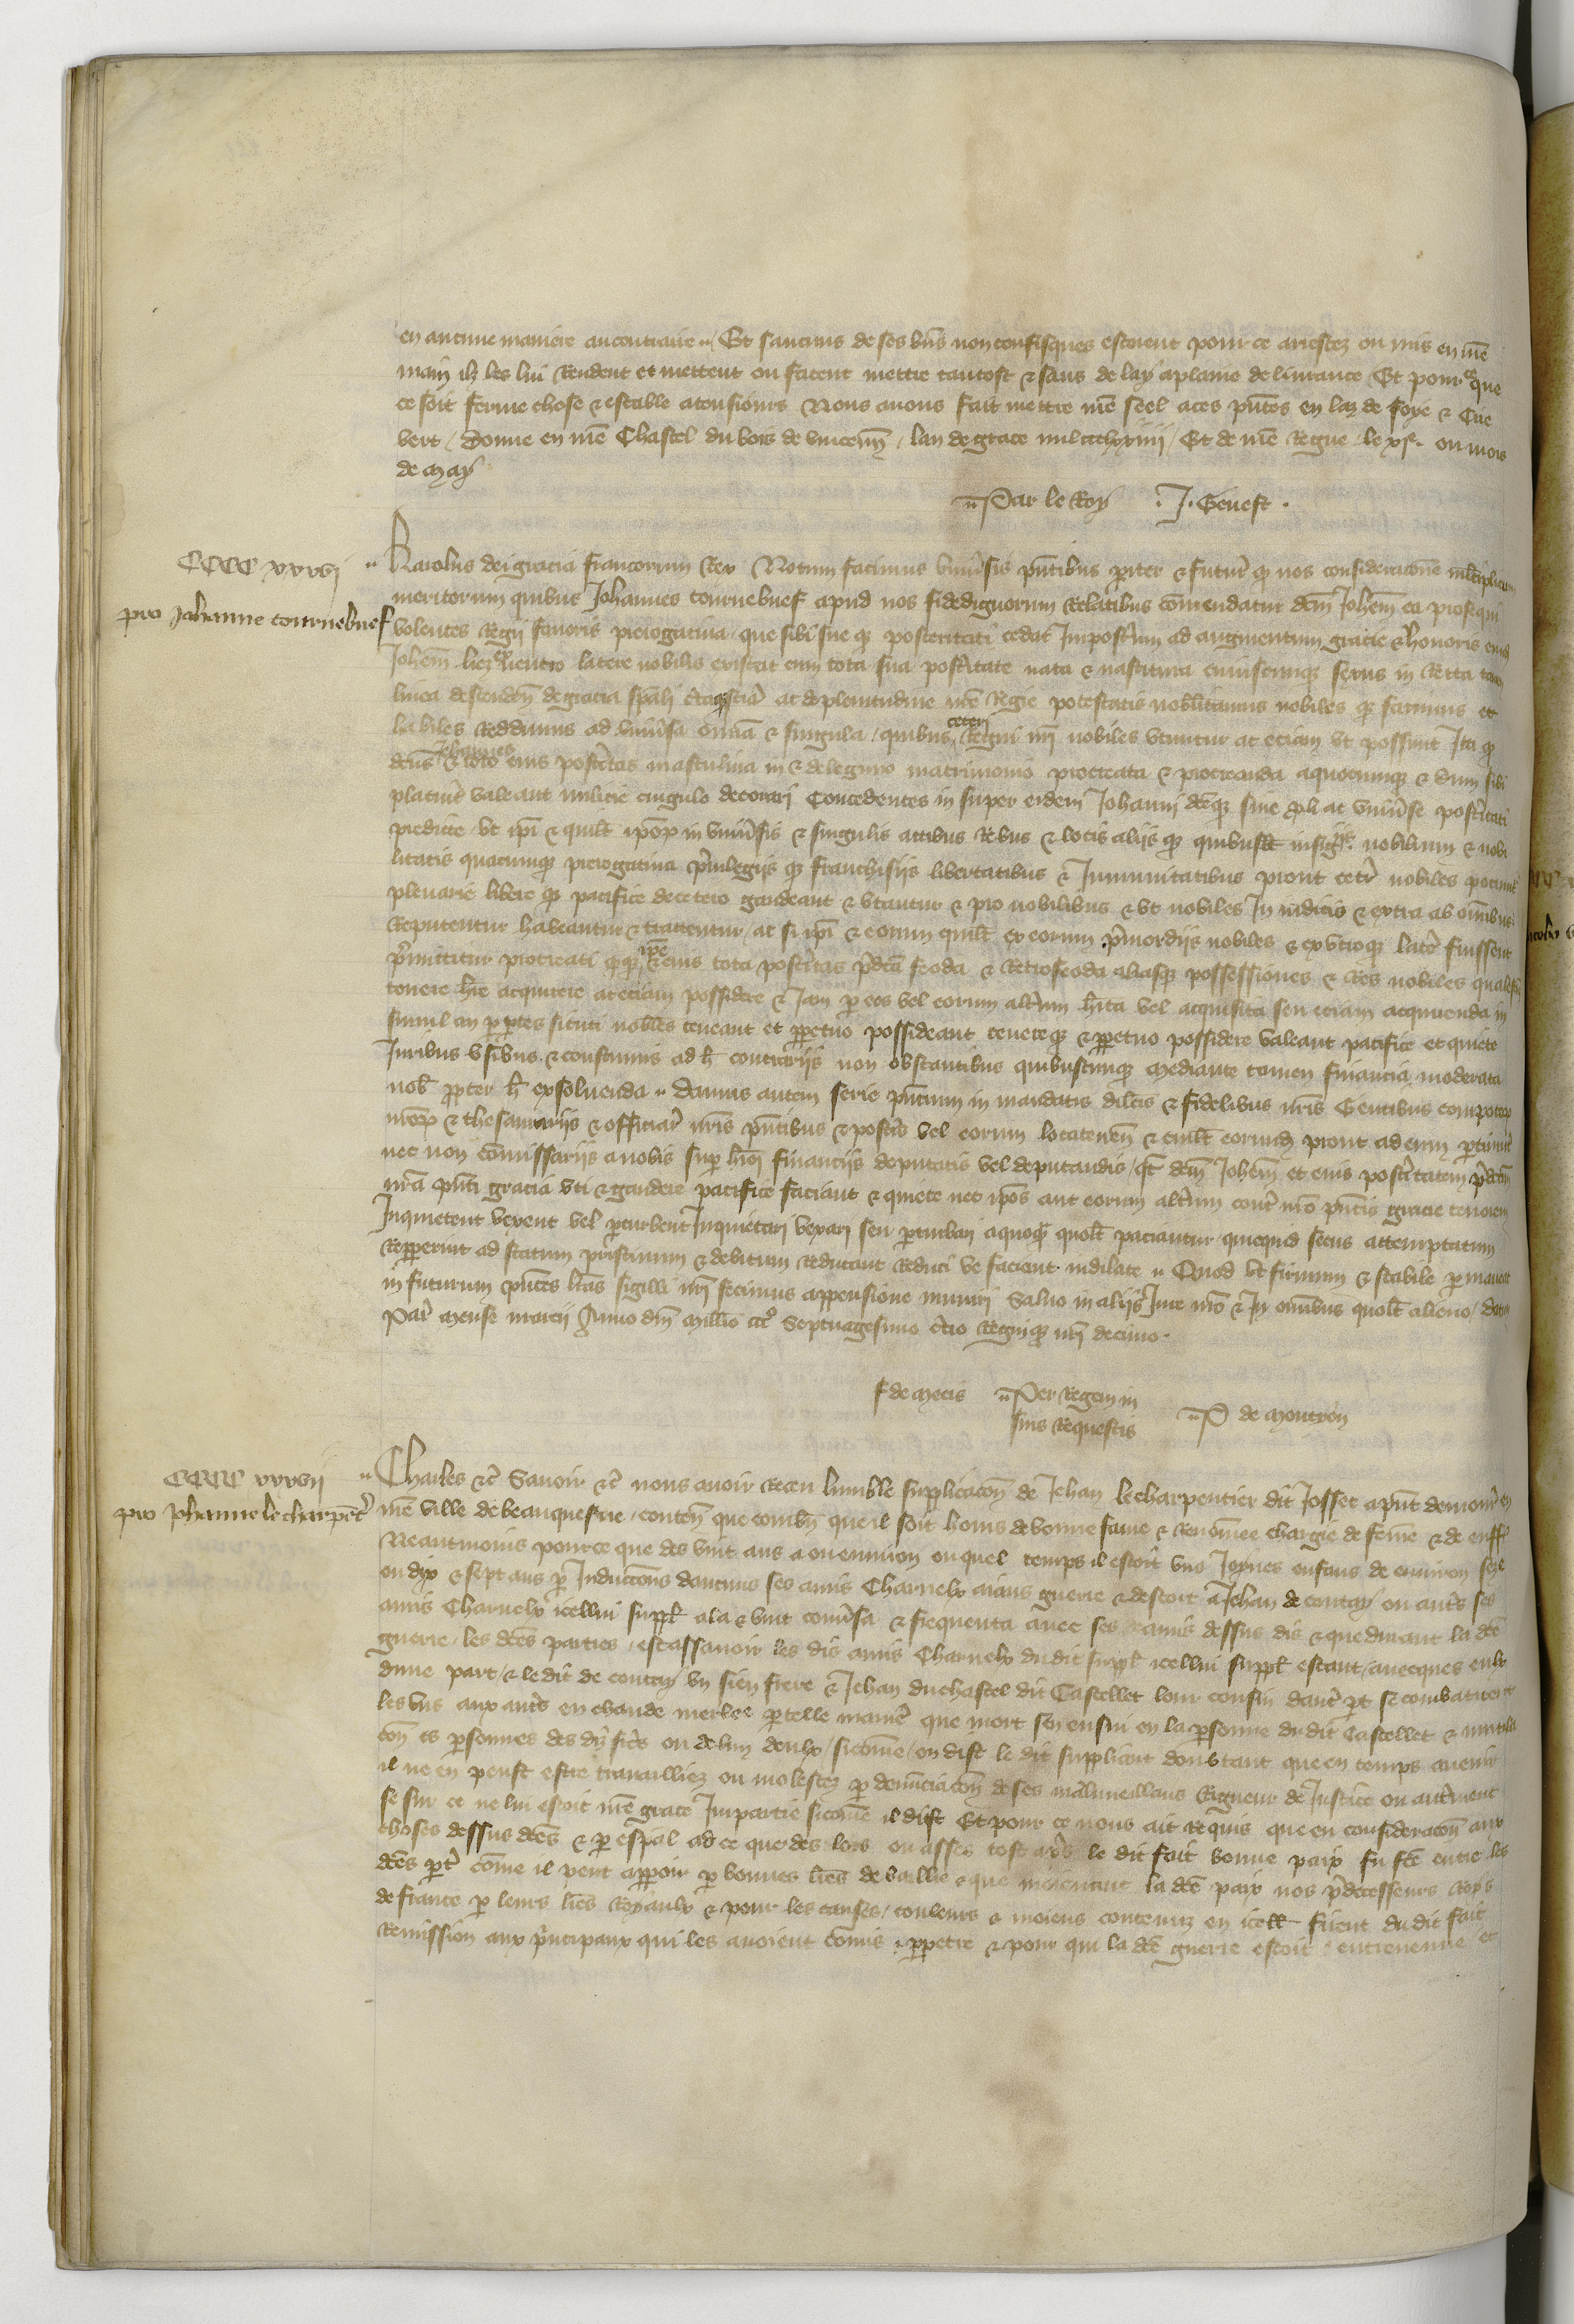 en aucune maniere aucontraire Et saucuns de ses bn̄s non confisques estoient pour ce arrestez ou mis en nr̄e
main ilz les lui Rendent et mettent ou facent mettre tantost & sans delay aplaine deliurance Et pour ce que
ce soit ferme chose & estable atousiours Nous auons fait mettre nr̄e seel aces pn̄tes en laz de soye & Cire
vert / Donne en nr̄e Chastel du bois de vincenn̄ / lan de grace mil ccclxxiiij / Et de nr̄e Regne le xjᵉ. ou mois
de may
Par le Roy J. Geneft.
CCCC xxxvj
pro Johanne tournebuef
Karolus dei gracia francorum Rex Notum facimus vniũsis pn̄tibus pariter & futur̃ q̃ nos consideracōne multiplicium
meritorum quibus Johannes tournebuef apud nos fidedignorum Relatibus cōmendatur dc̄m Joh̄em ea prosequi
volentes Regij fauoris prerogatiua / que sibi sue q̃ posteritati cedat Imposterum ad augmentum gracie & honoris eundem
Joh̄em licet ex ventro latere nobilis existat cum tota sua post̃itate nata & nascitura cuiuscunq̃ sexus in Recta tamen
linea descenden̄ de gracia sp̄ali certaq̃ scia ac de plenitudine nr̄e Regie potestatis nobilitamus nobiles q̃ facimus et
habiles Reddimus ad vniũsa om̄ia & singula / quibus ceteri Regni nr̄i nobiles vtuntur ac eciam vti possunt Ita q̃
dc̄us Johannes & tota eius post̃itas masculina in & de legitimo matrimonio procreata & procreanda aquocunq̃ & dum sibi
placuerit valeant milicie cingulo decorari Concedentes in super eidem Johanni dc̄eq̃ sue proli ac vniũse post̃itati
predicte / vt ip̄i & quil̄t ip̄oꝝ in vniũsis & singulis actibus Rebus & locis alijs q̃ quibusl̄t insignijs nobilium & nobi
litatis quacunq̃ prerogatiua preuilegijs q̃ franchisijs libertatibus & Immunitatibus prout ceter̃ nobiles pociunt̃
plenarie libere q̃ pacifice decetero gaudeant & vtantur & pro nobilibus & vt nobiles In iudicio & extra ab om̄ibus
Reputentur habeantur & tractentur / ac si ip̄i & eorum quil̄t ex eorum primordijs nobiles & ex vtroq̃ later̃ fuissent
premittitur procreati quodq̃ ip̄e & eius tota post̃itas pr̄dc̄a feoda & Retrofeoda aliasq̃ possessiones & Res nobiles quasl̄t
tenere h̄re acquirere ac eciam possidere & Jam per eos vel eorum alt̃um h̄ita vel acquisita seu eciam acquirenda in
simul an per ptes sicuti nobiles teneant et perpetuo possideant tenereq̃ & perpetuo possidere valeant pacifice et quiete
Juribus vsibus & constumis ad h̄ contrarijs non obstantibus quibuscunq̃ Mediante tamen financia moderata
nob̄ propter h̄ exsoluenda Damus autem serie pn̄cium in mandatis dil̄cis & fidelibus nr̄is Gentibus compotoꝝ
nr̄oꝝ & thesaurarijs & officiar̃ nr̄is pn̄tibus & post̃is vel eorum locatenen̄ & cuil̄t eorundem prout ad eum pertinuit
nec non cōmissarijs a nobis sup h̄mōi financijs deputatis vel deputandis q̃t dc̄m Joh̄em et eius post̃itatem pr̄dc̄am
nr̄a pn̄ti gracia vti & gaudere pacifice faciant & quiete nec ip̄os aut eorum alt̃um cont̃ nr̄e pn̄tis gracie tenorem
Inquietent vexent vel perturbent Inquietari vexari seu perturbari aquoq̃ quol̄t paciantur quicquid secus attemptatum
Repperint ad statum pristinum & debitum Reducant Reduci ve faciant indilate Quod vt firmum & stabile permaneat
in futurum pn̄tes l̄ras sigilli nr̄i fecimus appensione muniri Saluo in alijs Jure nr̄o & In om̄ibus quol̄t alieno / dat̃
Par̃ Mense marcij Anno dn̄i Mill̄io ccc° Septuagesimo t̃cio Regniq̃ nr̄i decimo.
f de Metis Per Regem in
suis Requestis P de Montron
CCCC xxxvij
pro Johanne le charpẽt̃
Charles &c̃ Sauoir &c̃ nous auoir Receu lumble supplicacōn̄ de Jehan lecharpentier dit Josset apn̄t demour̃ en
nr̄e ville de beauquesne / conten̄ que combn̄ que il soit homs de bonne fame & Renōmee chargie de fēme & de enffs
Neantmoins pource que des vint ans a ou enuiron ou quel temps il estoit vns Joynes enfans de enuiron seze
ou dix & sept ans p Inductiōns daucuns ses amis Charnelx aians guerre & descort a Jehan de contay ou aut̃s ses
amis Charnelx icellui supp̄l ala & vint conũsa & frequenta auec ses amis dessus dis & que durant la dc̄e
guerre / les dc̄es parties / estassauoir les dis amis Charnelx du dit supp̄l icellui supp̄l estant / auecques eulx
dune part / & le dit de contay vn sien frere & Jehan duchastel dit Castellet leur cousin dautr̃ p̄t se combatirent
les vns aux aut̃s en chaude merlee p telle manier̃ que mort sen ensui en la psonne du dit Castellet & mutila
cōn̄ es psonnes des d̄y fr̃es ou de lun deulx / sicōme / on dist le dit suppliant doubtant que en temps auenir
il ne en peust estre trauailliez ou molestez p denunciacōn̄ de ses malueillans Rigueur de Justice ou autr̃ment
se sur ce ne lui estoit nr̄e grace Impartie sicōme il dist Et pour ce nous ait Requis que en consideracōn̄ aux
choses dessus dc̄es & p esp̄al ad ce que des lors ou asses tost apr̃s le dit fait bonne paix fu fc̄e entre les
dc̄es pt̃ cōme il peut apparoir p bonnes l̄res de baillie & que moiennant la dc̄e paix nos pr̄decesseurs Roys
de france p leurs l̄res Royaulx & pour les causes / couleurs & moiens contenuz en icell̄ firent du dit fait
Remission aux principaux qui les auoient cōmis & perpetre & pour qui la dc̄e guerre estoit entretenue et